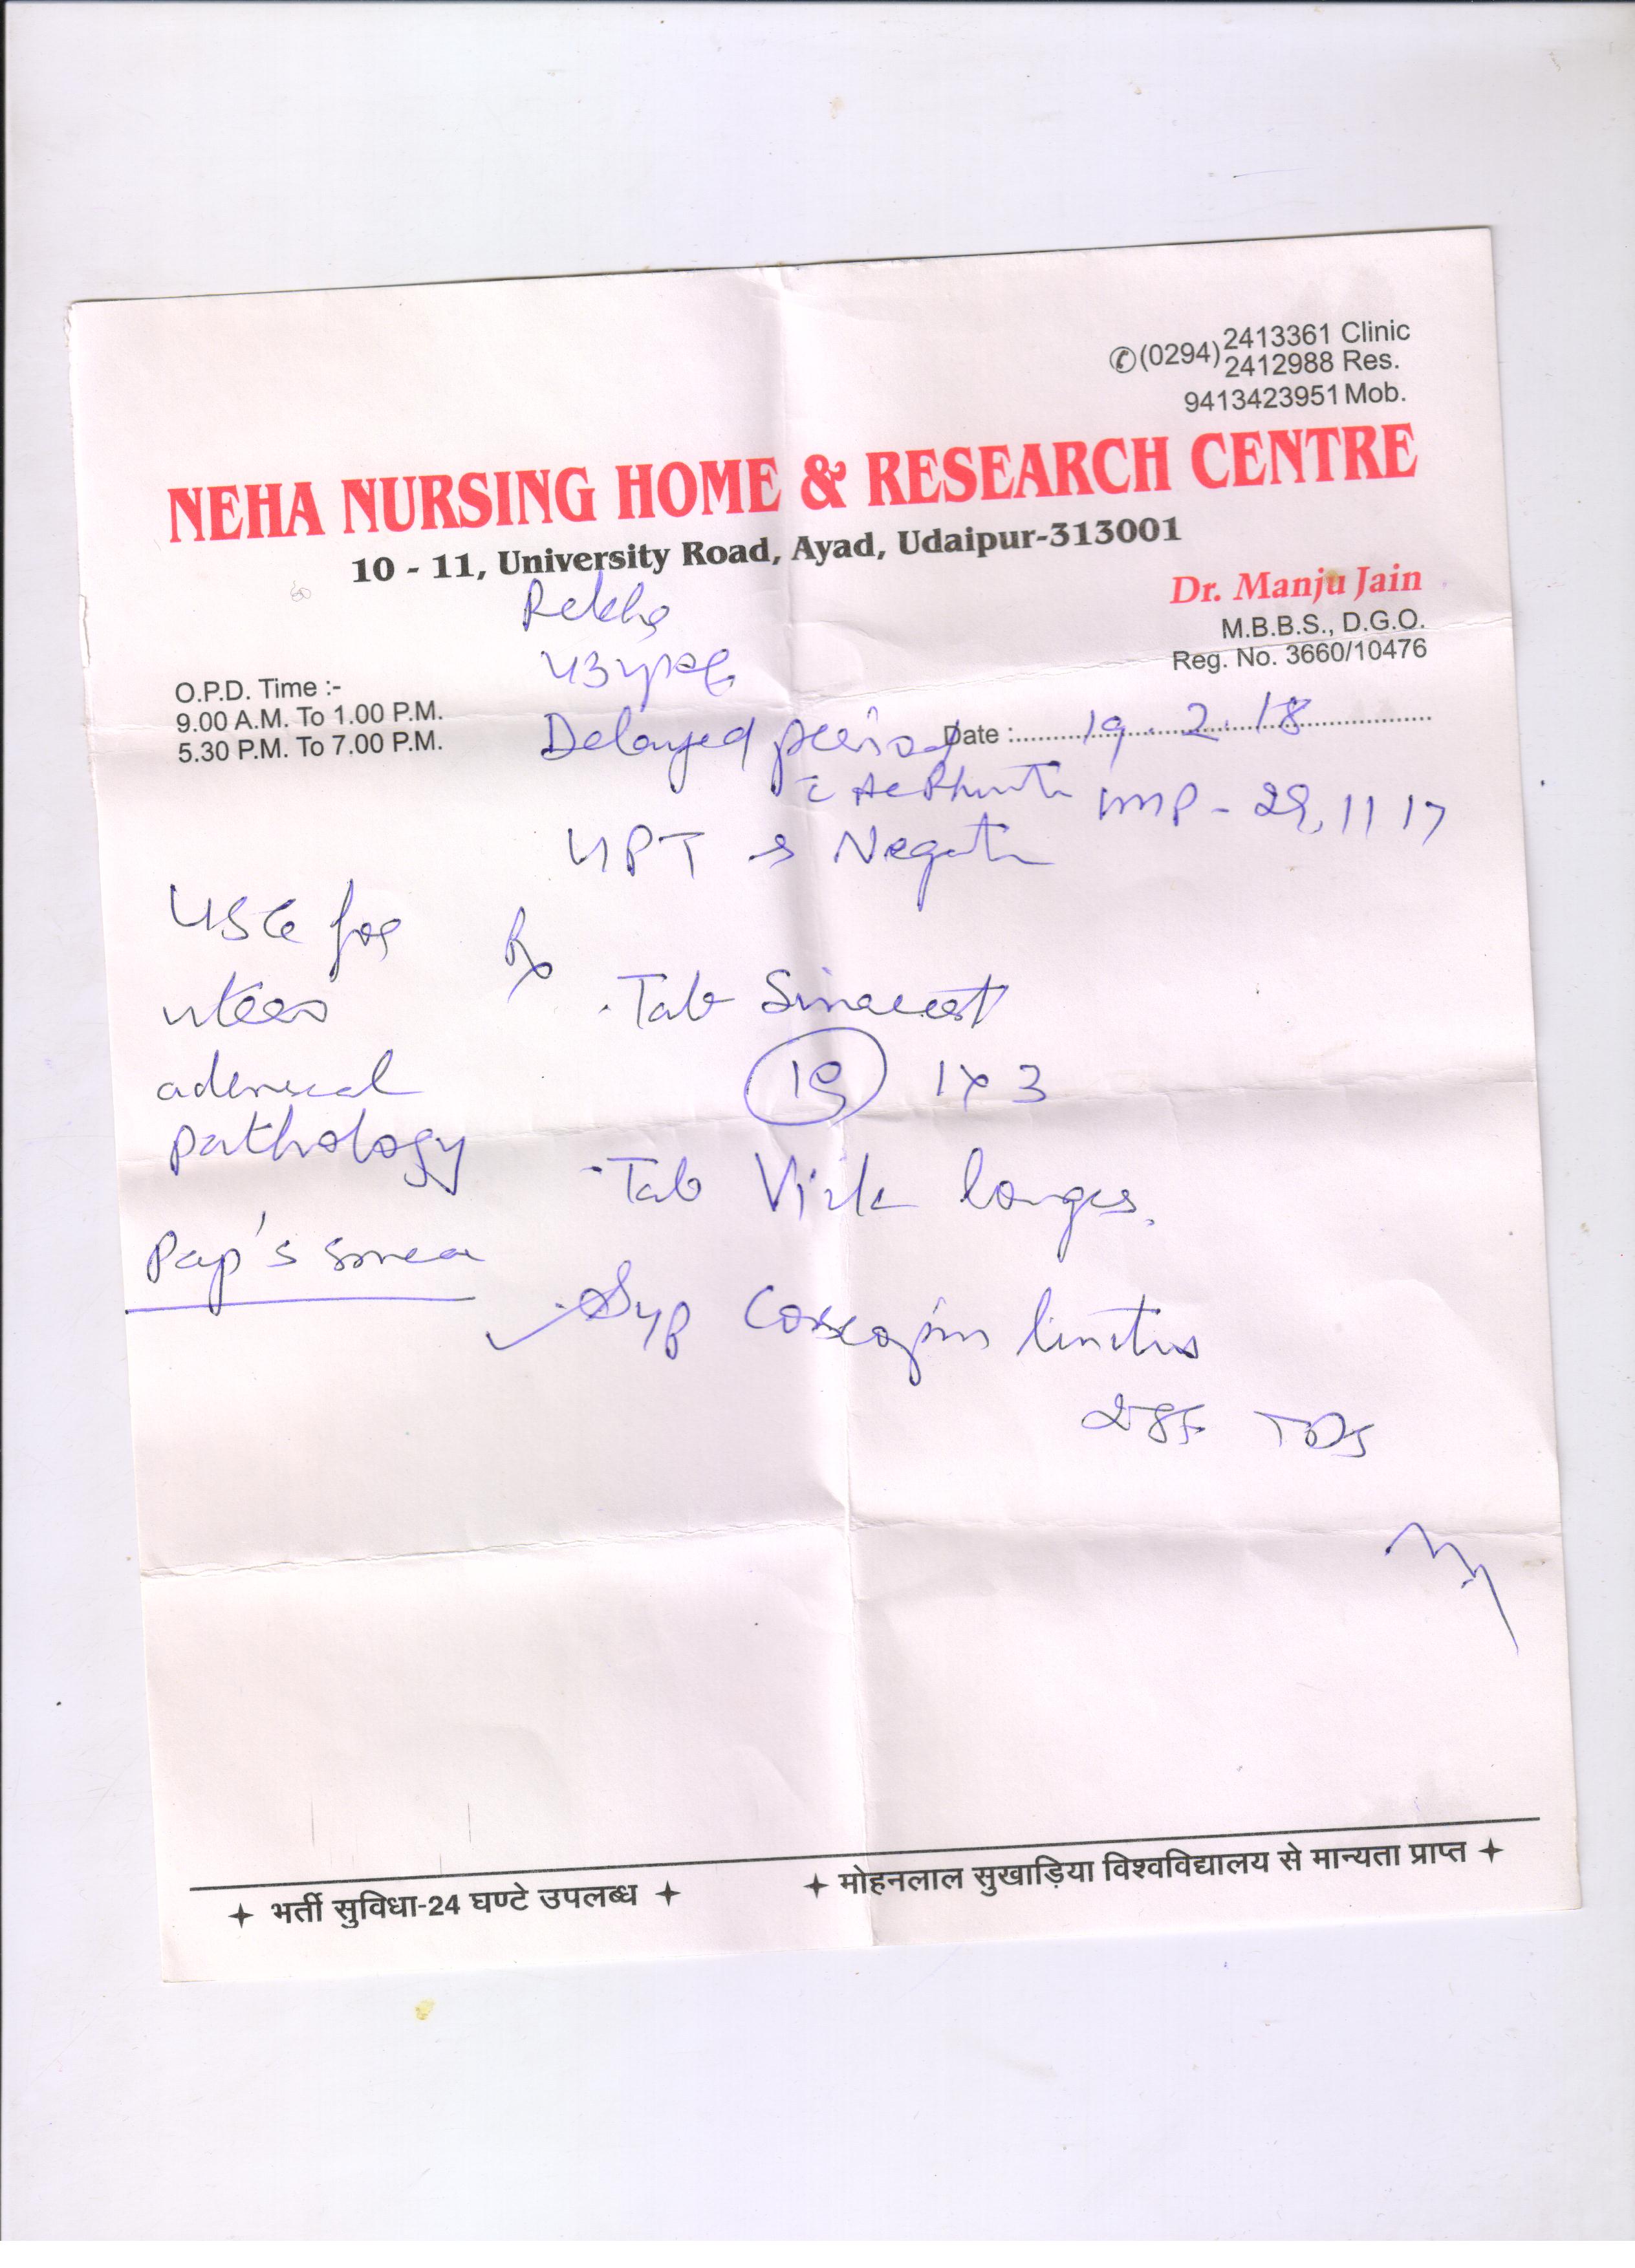 ✆(0294) 2413361 Clinic
2412988 Res.
9413423951 Mob.
NEHA NURSING HOME & RESEARCH CENTRE
10 - 11, University Road, Ayad, Udaipur-313001
Dr. Manju Jain
M.B.B.S., D.G.O.
Reg. No. 3660/10476
Rekha
43 yrs
O.P.D. Time :-
9.00 A.M. To 1.00 P.M.
5.30 P.M. To 7.00 P.M.
Date : 19.2.18
Delayed period
LMP - 29,11 17
UPT is Negative
USG for
uterus
adenexal
pathology
Pap's smear
Rx
Tab
1 x 3
Tab
Syp linctus
2TSF TDS
भर्ती सुविधा-24 घण्टे उपलब्ध
मोहनलाल सुखाड़िया विश्वविद्यालय से मान्यता प्राप्त